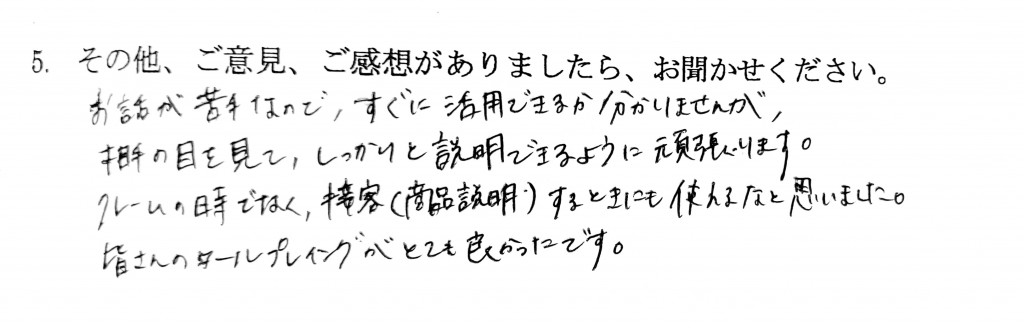 5. その他、ご意見、ご感想がありましたら、お聞かせください。
お話が苦手なので、すぐに活用できるか分かりませんが、
相手の目を見て、しっかりと説明できるように頑張ります。
クレームの時でなく、接客(商品説明)するときにも使えるなと思いました。
皆さんのロールプレイングがとても良かったです。